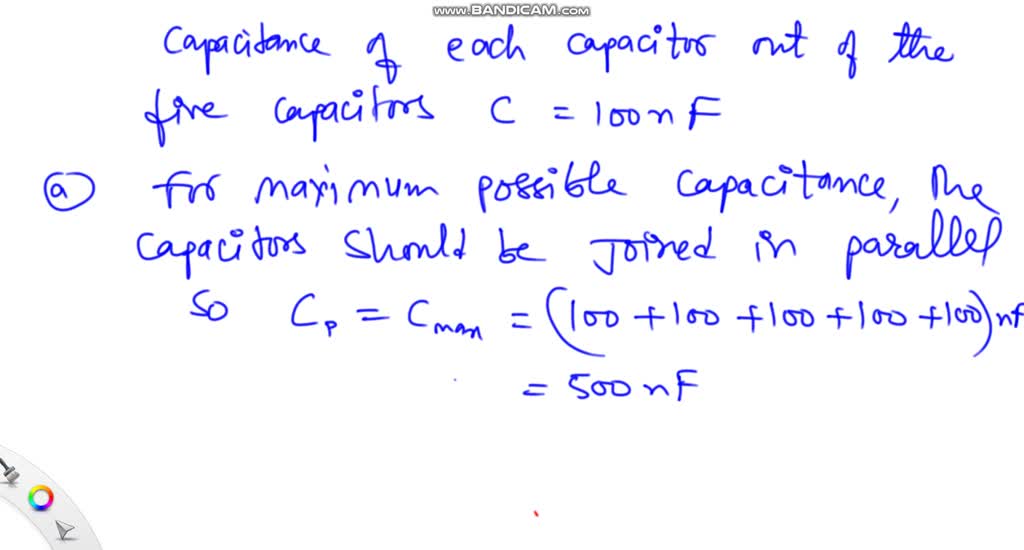 www.BANDICAM.com
Capacitance of each capacitor out of the
five capacitors C = 100 nF
(a) For maximum possible capacitance, the
capacitors should be joined in parallel
so Cp = Cmax = (100 + 100 + 100 + 100 + 100) nF
= 500 nF